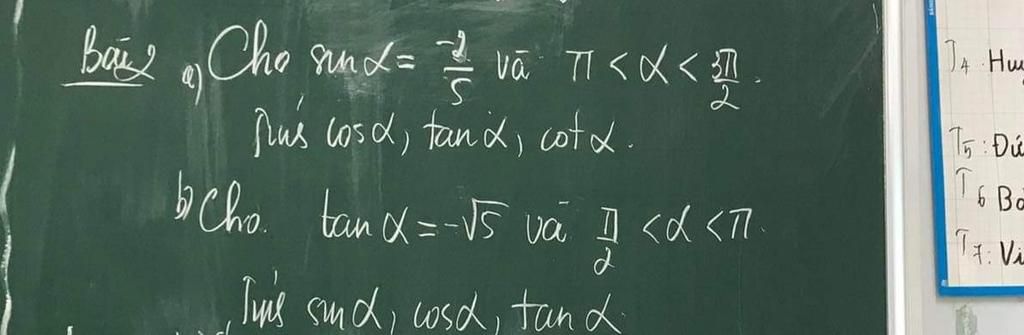 Bài 2 a) Cho sin α = -2/5 và π < α < 3π/2.
Tính cos α, tan α, cot α.
b) Cho. tan α = -√5 và π/2 < α < π.
Tính sin α, cos α, tan α
T4 Huy
T5: Đứ
T6 Bả
T7: Vi